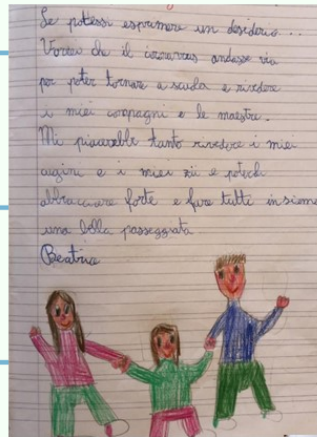 Se potessi esprimere un desiderio...
Vorrei che il coronavirus andasse via
per poter tornare a scuola e rivedere
i miei compagni e le maestre.
Mi piacerebbe tanto rivedere i miei
cugini e i miei zii e poterli
abbracciare forte e fare tutti insieme
una bella passeggiata
Beatrice